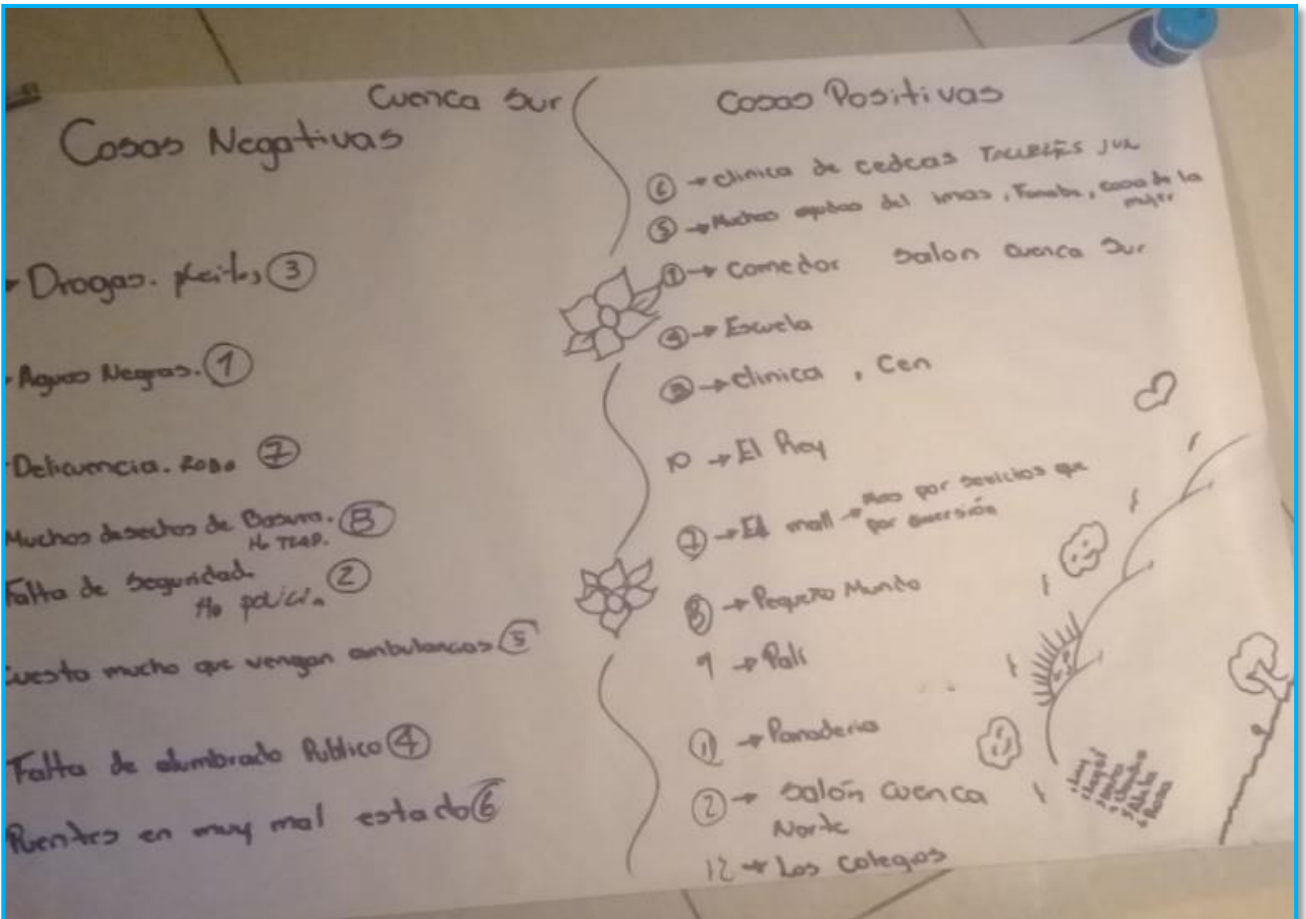 Cuenca Sur
Cosas Negativas
Drogas. pleitos ③
Aguas Negras. ①
Delicuencia. Robo ⑦
Muchos desechos de Basura. ⑧
No TRAP.
Falta de Seguridad. ②
No policia
Cuesta mucho que vengan ambulancas ⑤
Falta de alumbrado Publico ④
Puentes en muy mal estado ⑥
Cosas Positivas
⑥ → clinica de cedcas
⑤ → Muchas ayudas del imas, Fonabe, casa de la
mujer
① → comedor salon cuenca Sur
④ → Escuela
③ → clinica, Cen
10 → El Rey
⑦ → El mall → Mas por servicios que
por diversión
⑧ → Pequeño Mundo
9 → Pali
⑪ → Panaderia
② → salón cuenca
Norte
12 → Los Colegios